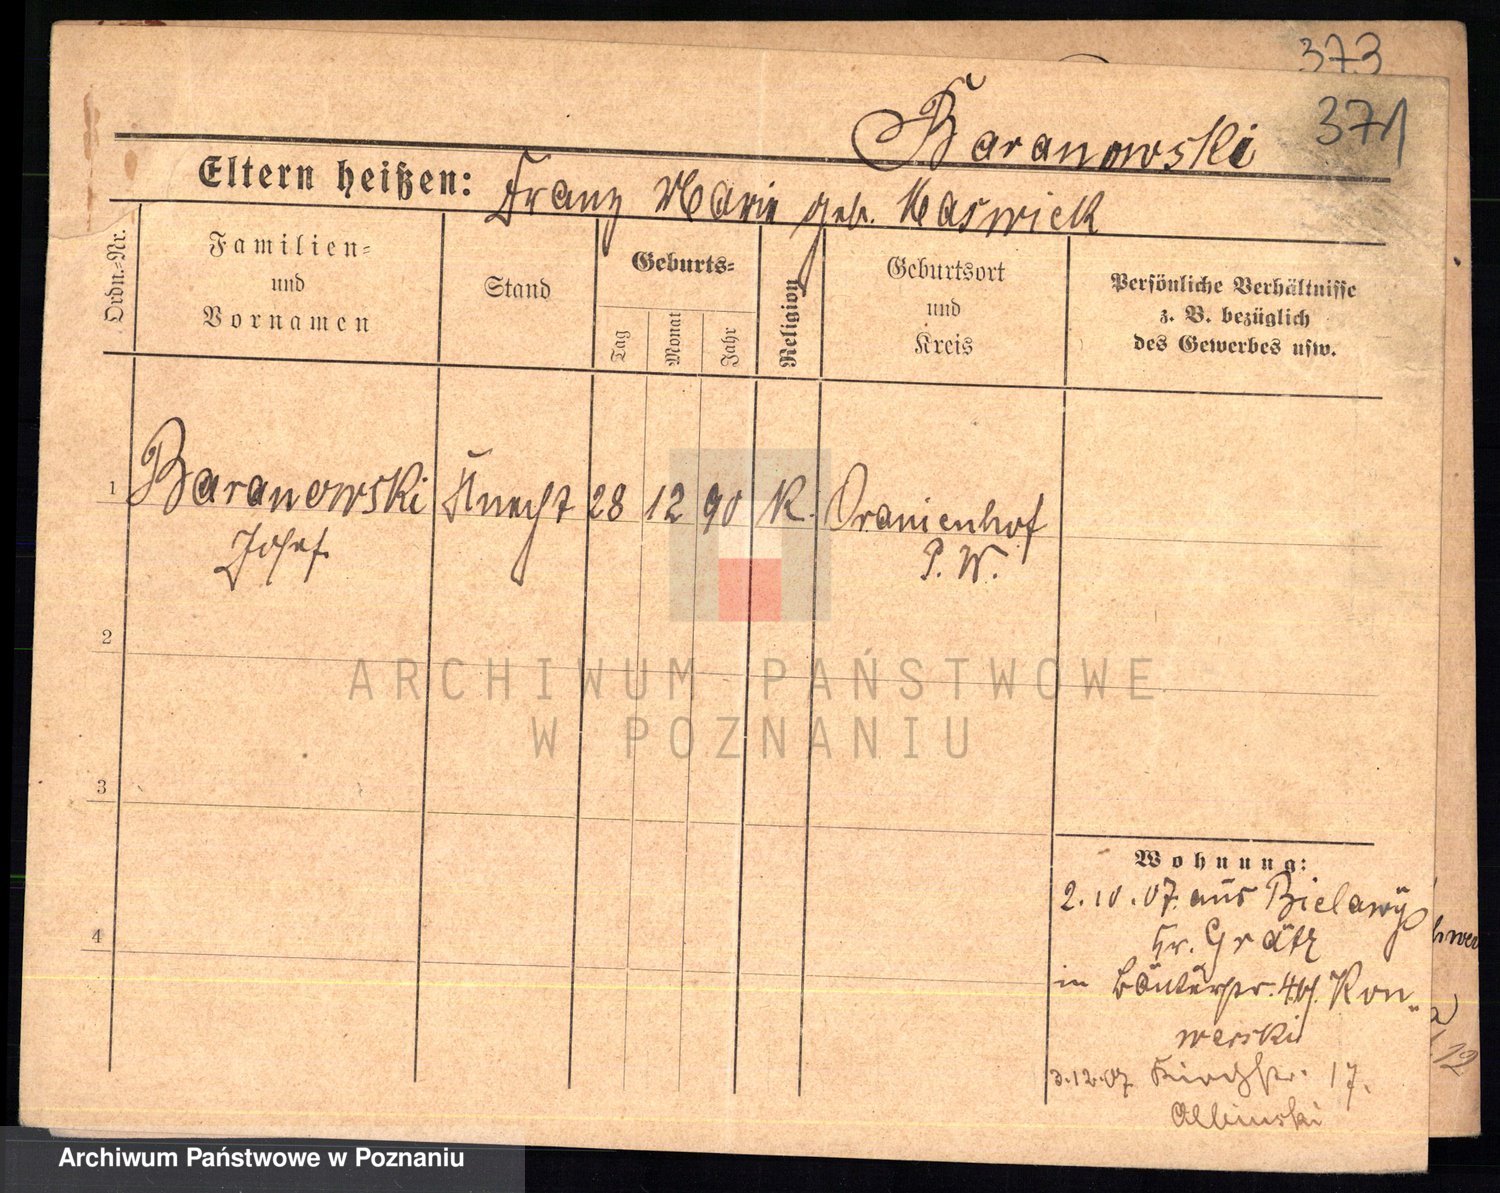 373
371
Baranowski
Eltern heißen: Franz Marie geb. Maswick
Ordn.-Nr.
Familien-
und
Vornamen
Stand
Geburts-
Tag
Monat
Jahr
Religion
Geburtsort
und
Kreis
Persönliche Verhältnisse
z. B. bezüglich
des Gewerbes usw.
1 Baranowski Knecht 28 12 90 K. Oranienhof
Josef P. W.
2
ARCHIWUM PAŃSTWOWE
W POZNANIU
3
Wohnung:
2.10.07. aus Bielawy
Kr. Grätz
4
in Bäckerstr. Kon-
werski
12
3.12.07 Kirchstr. 17.
Albinski
Archiwum Państwowe w Poznaniu